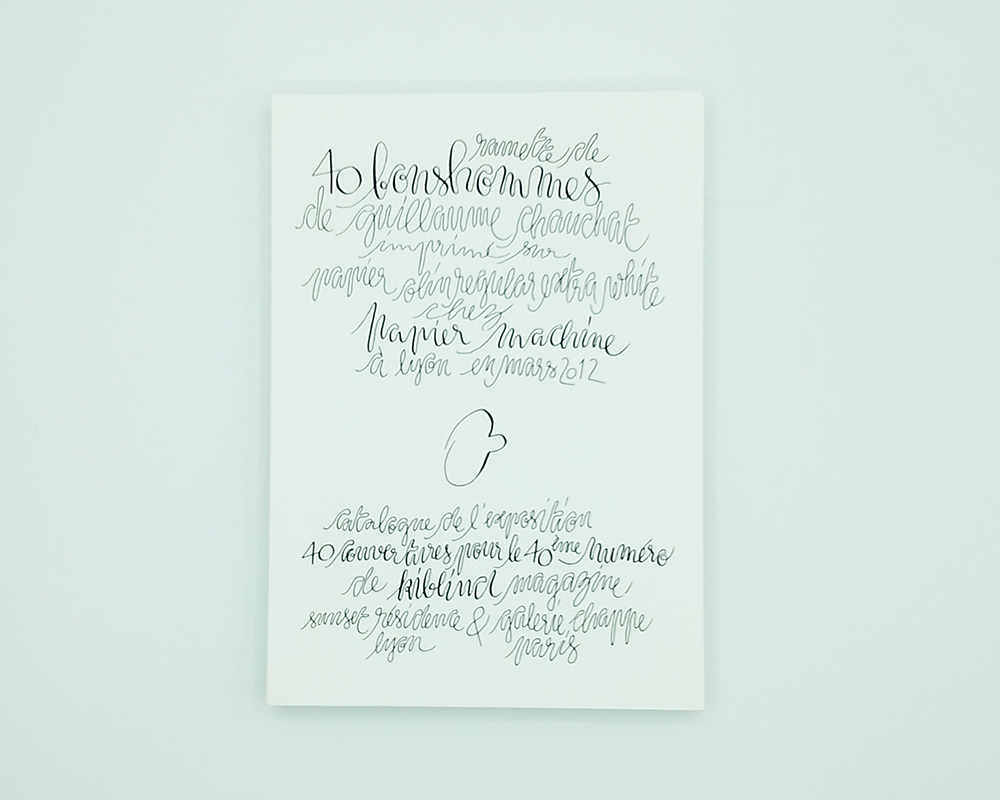 ramette de
40 bonshommes
de guillaume chauchat
imprimé sur
papier olin regular extra white
chez
papier machine
à lyon en mars 2012
catalogue de l'exposition
40 couvertures pour le 40ème numéro
de kiblind magazine
sunset résidence & galerie chappe
lyon paris